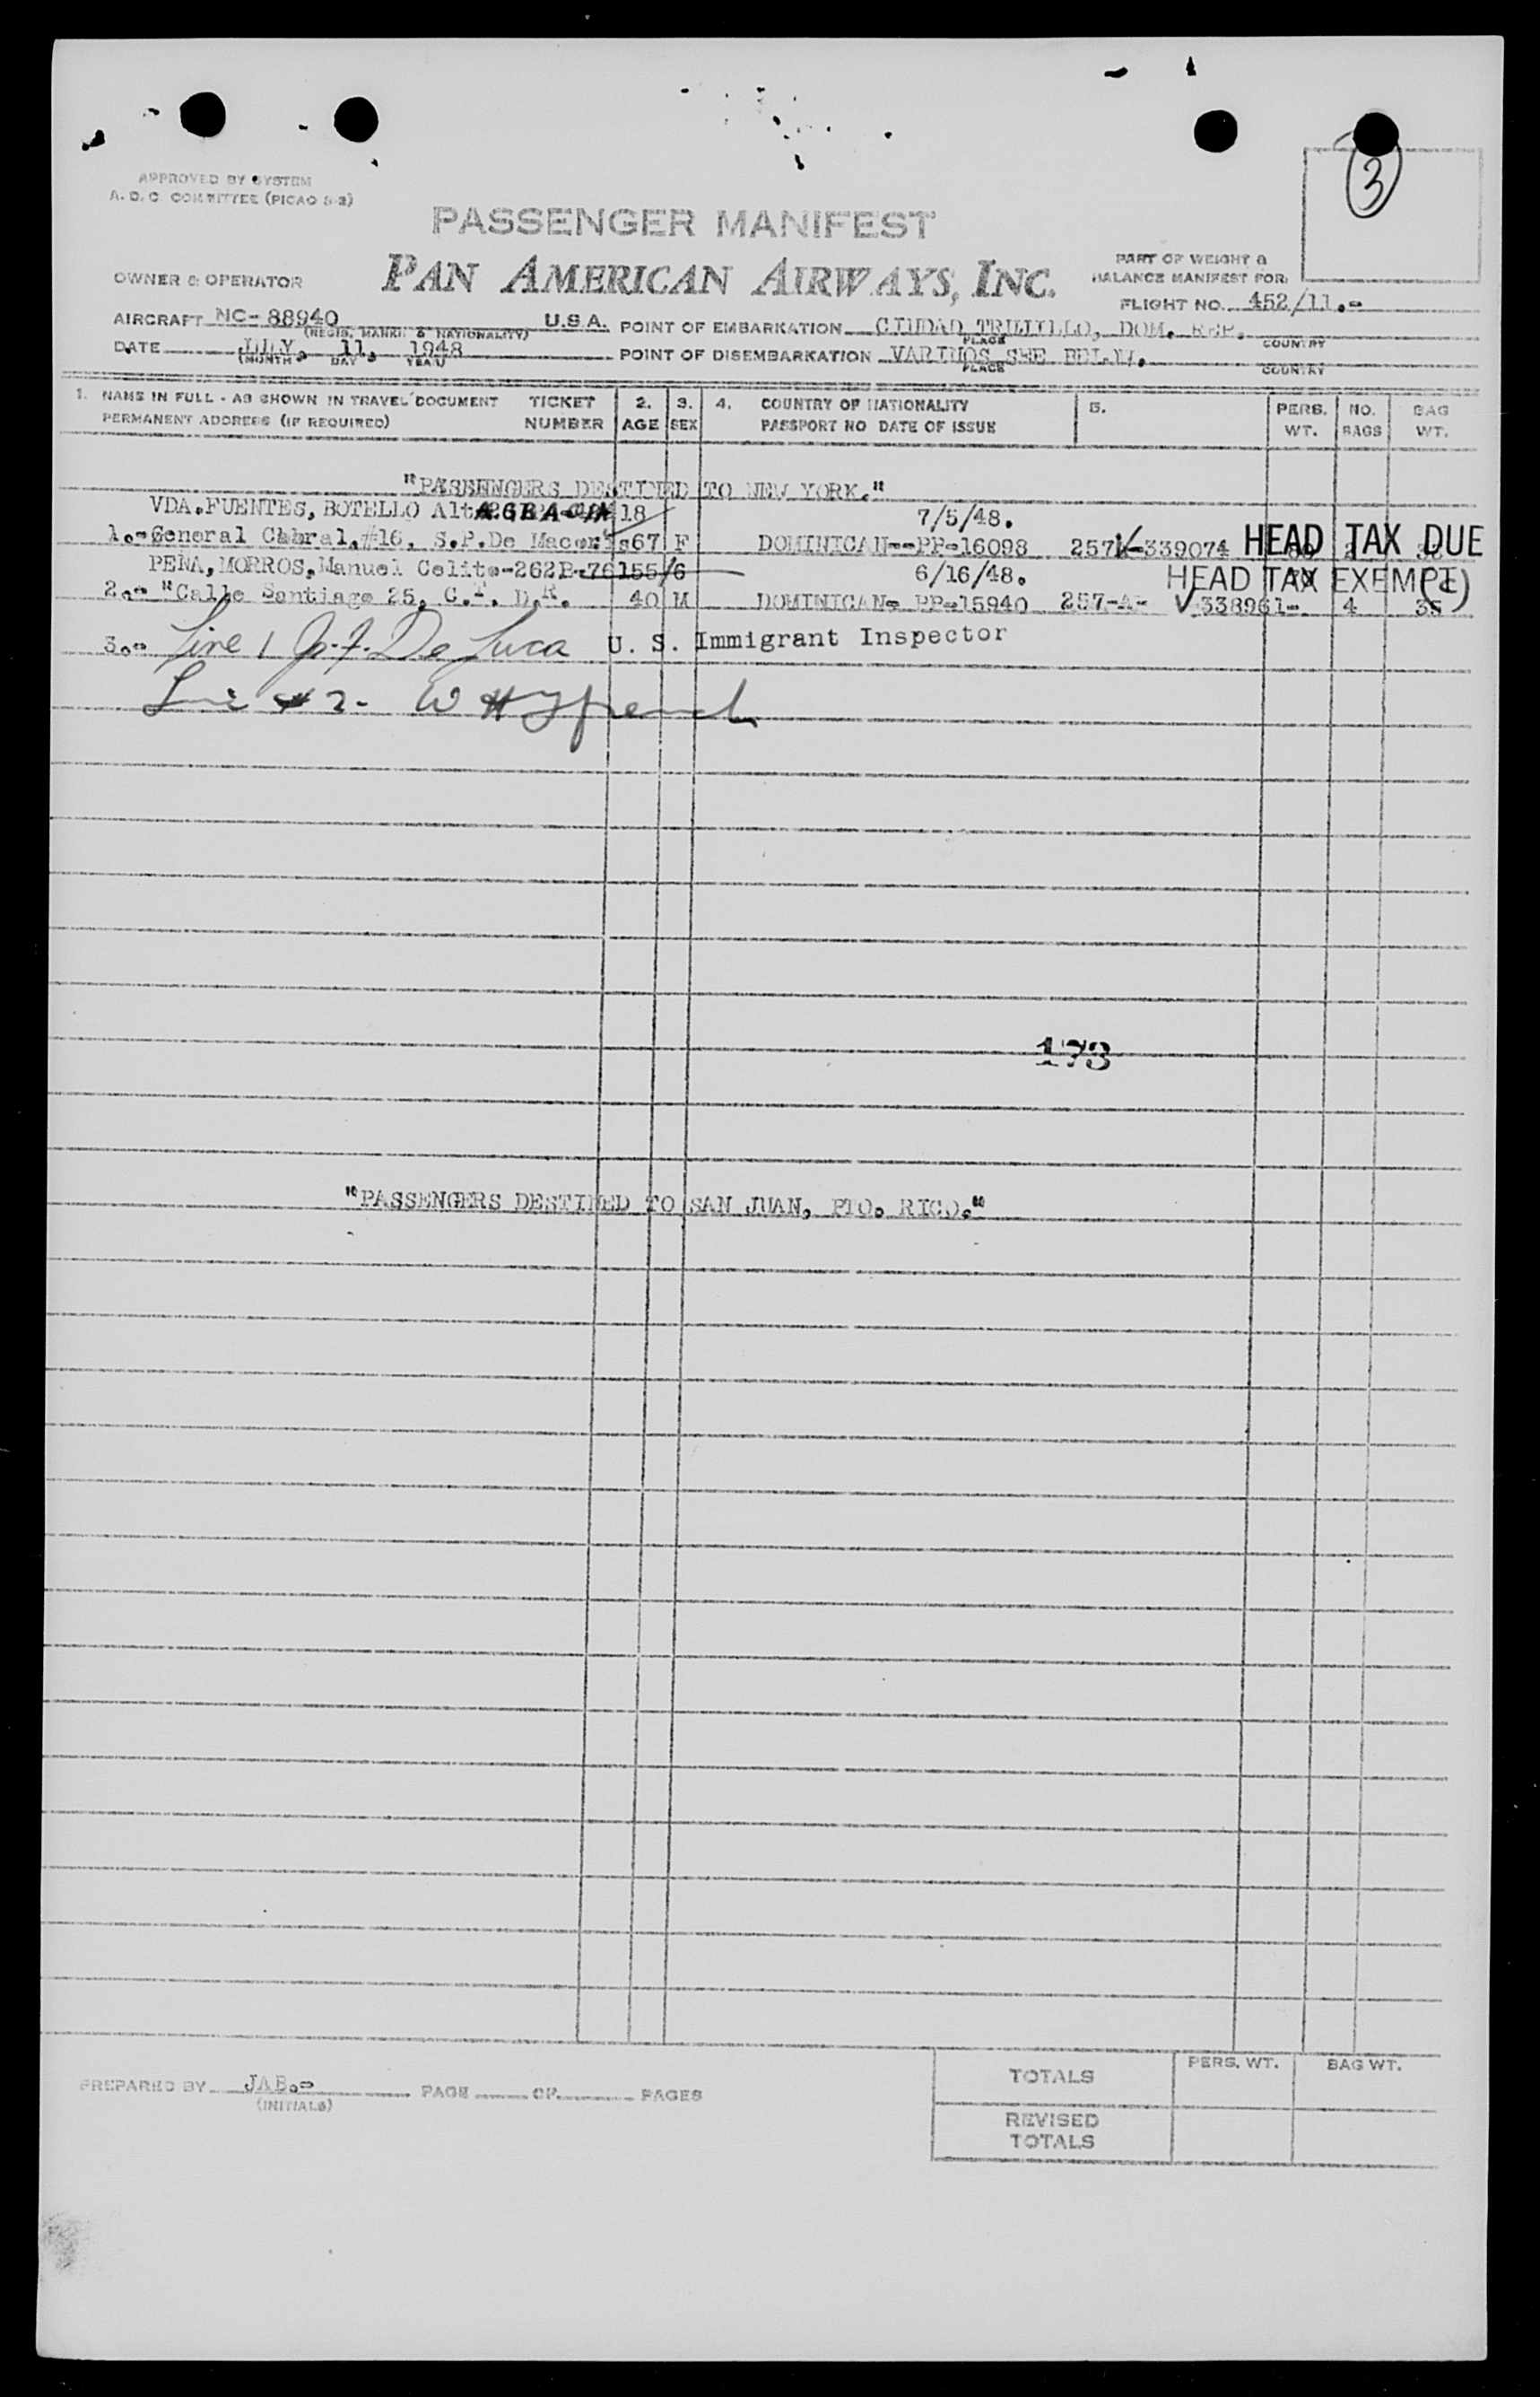 3
APPROVED BY SYSTEM
A. O. C. COMMITTEE (PICAO S-2)
PASSENGER MANIFEST
PAN AMERICAN AIRWAYS, INC.
OWNER & OPERATOR
PART OF WEIGHT &
BALANCE MANIFEST FOR:
FLIGHT NO. 452/11.-
AIRCRAFT NC-88940 U.S.A. POINT OF EMBARKATION CIUDAD TRUJILLO, DOM. REP.
(REGIS. MARKS & NATIONALITY) PLACE COUNTRY
DATE JULY, 11, 1948 POINT OF DISEMBARKATION VARIUOS SEE BELW.
(MONTH DAY YEAR) PLACE COUNTRY
1. NAME IN FULL - AS SHOWN IN TRAVEL DOCUMENT TICKET 2. 3. 4. COUNTRY OF NATIONALITY 5. PERS. NO. BAG
PERMANENT ADDRESS (IF REQUIRED) NUMBER AGE SEX PASSPORT NO DATE OF ISSUE WT. BAGS WT.
"PASSENGERS DESTINED TO NEW YORK."
VDA.FUENTES, BOTELLO 18 7/5/48.
1.-General Cabral,#16, S.P.De Macoris 67 F DOMINICAN--PP-16098 257 339074 HEAD TAX DUE
PENA, MORROS, Manuel -262B-76155/6 6/16/48. HEAD TAX EXEMPT
2.- "Calle Santiago 25, C.T. D.R. 40 M DOMINICAN- PP-15940 257-A- 338961- 4
3.- Line 1 De Luca U. S. Immigrant Inspector
Line #2- W H French
173
"PASSENGERS DESTINED TO SAN JUAN, PTO. RICO."
PREPARED BY JAB.- PAGE OF PAGES
(INITIALS)
TOTALS PERS. WT. BAG WT.
REVISED
TOTALS